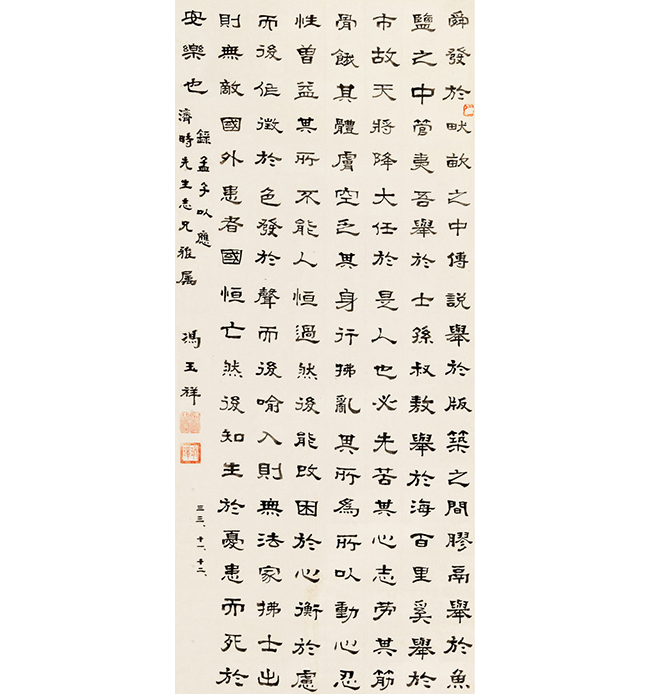 舜發於畎畝之中傅說舉於版築之間膠鬲舉於魚
鹽之中管夷吾舉於士孫叔敖舉於海百里奚舉於
市故天將降大任於是人也必先苦其心志勞其筋
骨餓其體膚空乏其身行拂亂其所爲所以動心忍
性曾益其所不能人恒過然後能改困於心衡於慮
而後作徵於色發於聲而後喻入則無法家拂士出
則無敵國外患者國恒亡然後知生於憂患而死於
安樂也
錄孟子以應
濟時先生志兄雅屬
馮玉祥
三三、十一、十二、